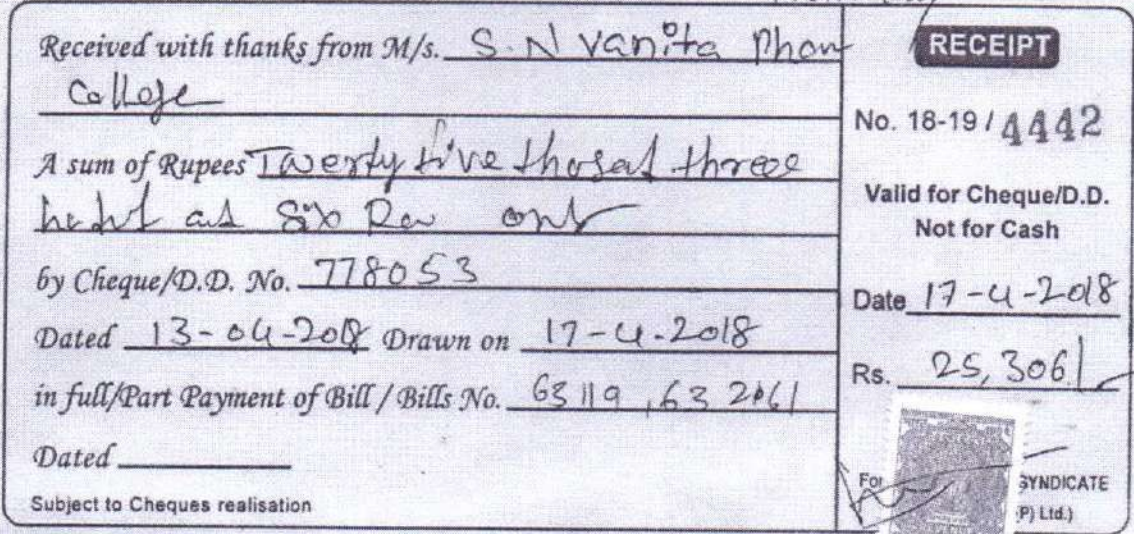 Received with thanks from M/s. S. N Vanita Pham
College
A sum of Rupees Twenty five thosad three
hadrd ad Six Rs only
by Cheque/D.D. No. 778053
Dated 13-04-2018 Drawn on 17-4-2018
in full/Part Payment of Bill / Bills No. 63119, 63
Dated
Subject to Cheques realisation
RECEIPT
No. 18-19 / 4442
Valid for Cheque/D.D.
Not for Cash
Date 17-4-2018
Rs. 25,306/
For SYNDICATE
(P) Ltd.)